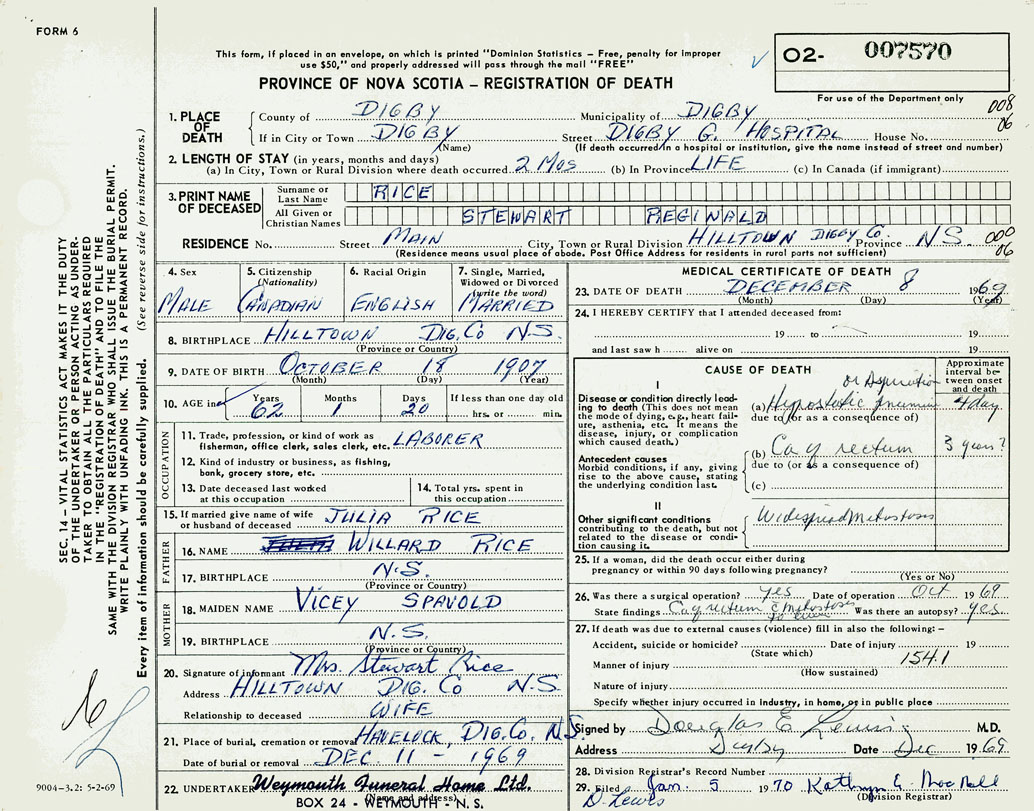 FORM 6
This form, if placed in an envelope, on which is printed "Dominion Statistics – Free, penalty for improper
use $50," and properly addressed will pass through the mail "FREE"
PROVINCE OF NOVA SCOTIA – REGISTRATION OF DEATH
02- 007570
For use of the Department only
008
06
1. PLACE OF DEATH
County of DIGBY Municipality of DIGBY
If in City or Town DIGBY Street DIGBY G. HOSPITAL House No.
(Name) (If death occurred in a hospital or institution, give the name instead of street and number)
2. LENGTH OF STAY (in years, months and days)
(a) In City, Town or Rural Division where death occurred 2 Mos (b) In Province LIFE (c) In Canada (if immigrant)
3. PRINT NAME OF DECEASED
Surname or Last Name RICE
All Given or Christian Names STEWART REGINALD
RESIDENCE No. Street MAIN City, Town or Rural Division HILLTOWN DIGBY CO. Province NS. 000
06
(Residence means usual place of abode. Post Office Address for residents in rural parts not sufficient)
4. Sex
MALE
5. Citizenship (Nationality)
CANADIAN
6. Racial Origin
ENGLISH
7. Single, Married, Widowed or Divorced (write the word)
MARRIED
8. BIRTHPLACE HILLTOWN DIG.CO N.S.
(Province or Country)
9. DATE OF BIRTH OCTOBER 18 1907
(Month) (Day) (Year)
10. AGE in Years Months Days If less than one day old
62 1 20 hrs. or min.
OCCUPATION
11. Trade, profession, or kind of work as
fisherman, office clerk, sales clerk, etc. LABORER
12. Kind of industry or business, as fishing,
bank, grocery store, etc.
13. Date deceased last worked
at this occupation
14. Total yrs. spent in
this occupation
15. If married give name of wife
or husband of deceased JULIA RICE
FATHER
16. NAME WILLARD RICE
17. BIRTHPLACE N.S.
(Province or Country)
MOTHER
18. MAIDEN NAME VICEY SPAVOLD
19. BIRTHPLACE N.S.
(Province or Country)
20. Signature of informant Mrs. Stewart Rice
Address HILLTOWN DIG. CO N.S
Relationship to deceased WIFE
21. Place of burial, cremation or removal HAVELOCK, DIG.CO. N.S.
Date of burial or removal DEC. 11 - 1969
22. UNDERTAKER Weymouth Funeral Home Ltd.
(Name and address)
BOX 24 - WEYMOUTH - N. S.
MEDICAL CERTIFICATE OF DEATH
23. DATE OF DEATH DECEMBER 8 1969
(Month) (Day) (Year)
24. I HEREBY CERTIFY that I attended deceased from:
19 to 19
and last saw h alive on 19
CAUSE OF DEATH
Approximate interval between onset and death
I
Disease or condition directly leading to death (This does not mean the mode of dying, e.g., heart failure, asthenia, etc. It means the disease, injury, or complication which caused death.)
or Aspiration
(a) Hypostatic pneumonia 4 day
due to (or as a consequence of)
Antecedent causes
Morbid conditions, if any, giving rise to the above cause, stating the underlying condition last.
(b) Ca of rectum 3 years?
due to (or as a consequence of)
(c)
II
Other significant conditions contributing to the death, but not related to the disease or condition causing it.
Widespread metastasis
25. If a woman, did the death occur either during
pregnancy or within 90 days following pregnancy?
(Yes or No)
26. Was there a surgical operation? yes Date of operation Oct 1969
State findings Ca of rectum c metastasis Was there an autopsy? yes
27. If death was due to external causes (violence) fill in also the following: –
Accident, suicide or homicide? Date of injury 19
(State which)
Manner of injury 154.1
(How sustained)
Nature of injury
Specify whether injury occurred in Industry, in home, or in public place
Signed by Douglas E Lewis M.D.
Address Digby Date Dec 1969
28. Division Registrar's Record Number
29. Filed Jan. 5 1970
D. Lewis (Division Registrar)
SEC. 14 – VITAL STATISTICS ACT MAKES IT THE DUTY
OF THE UNDERTAKER OR PERSON ACTING AS UNDER-
TAKER TO OBTAIN ALL THE PARTICULARS REQUIRED
IN THE "REGISTRATION OF DEATH" AND TO FILE THE
SAME WITH THE DIVISION REGISTRAR WHO SHALL ISSUE THE BURIAL PERMIT.
WRITE PLAINLY WITH UNFADING INK. THIS IS A PERMANENT RECORD.
Every item of information should be carefully supplied. (See reverse side for instructions.)
9004–3.2: 5-2-69